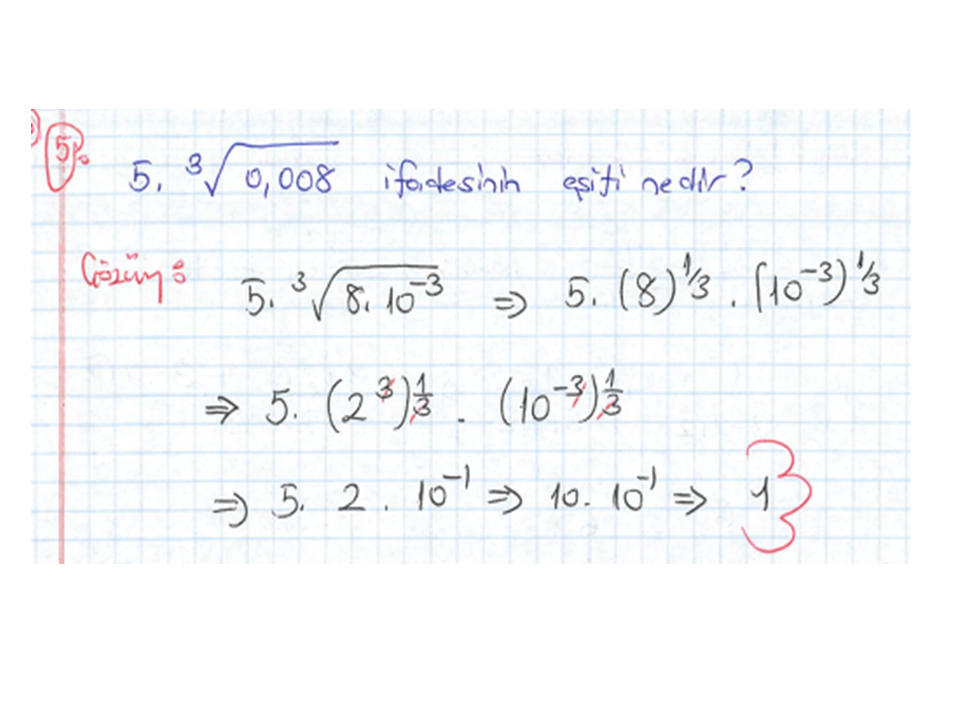 5):
5. ³√0,008 ifadesinin eşiti nedir?
Çözüm:
5. ³√8.10⁻³ ⇒ 5. (8)^1/3 . (10⁻³)^1/3
⇒ 5. (2³)^1/3 . (10⁻³)^1/3
⇒ 5. 2 . 10⁻¹ ⇒ 10. 10⁻¹ ⇒ 1